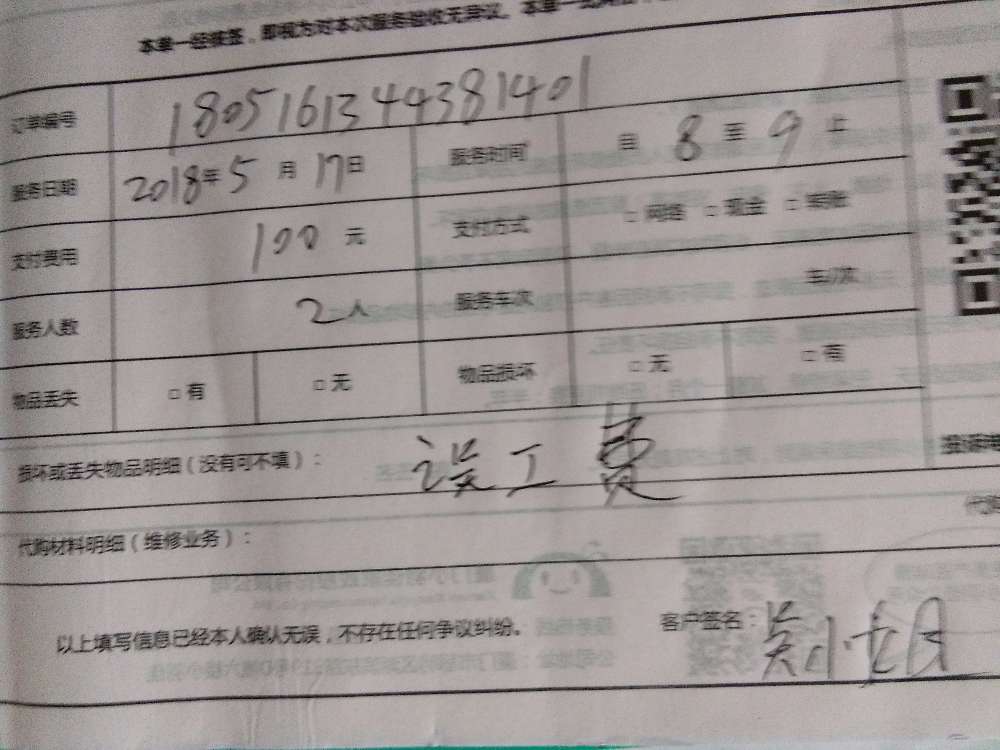 本单一经核签，即视为对本次服务验收无异议。本单一式
订单编号 18051613444381401
服务日期 2018年5月17日 服务时间 自 8 至 9 止
支付费用 100 元 支付方式 □ 网络 □ 现金 □ 转账
服务人数 2人 服务车次 车/次
物品丢失 □ 有 □ 无 物品损坏 □ 无 □ 有
损坏或丢失物品明细（没有可不填）： 误工费
代购材料明细（维修业务）：
代购
以上填写信息已经本人确认无误，不存在任何争议纠纷。 客户签名：